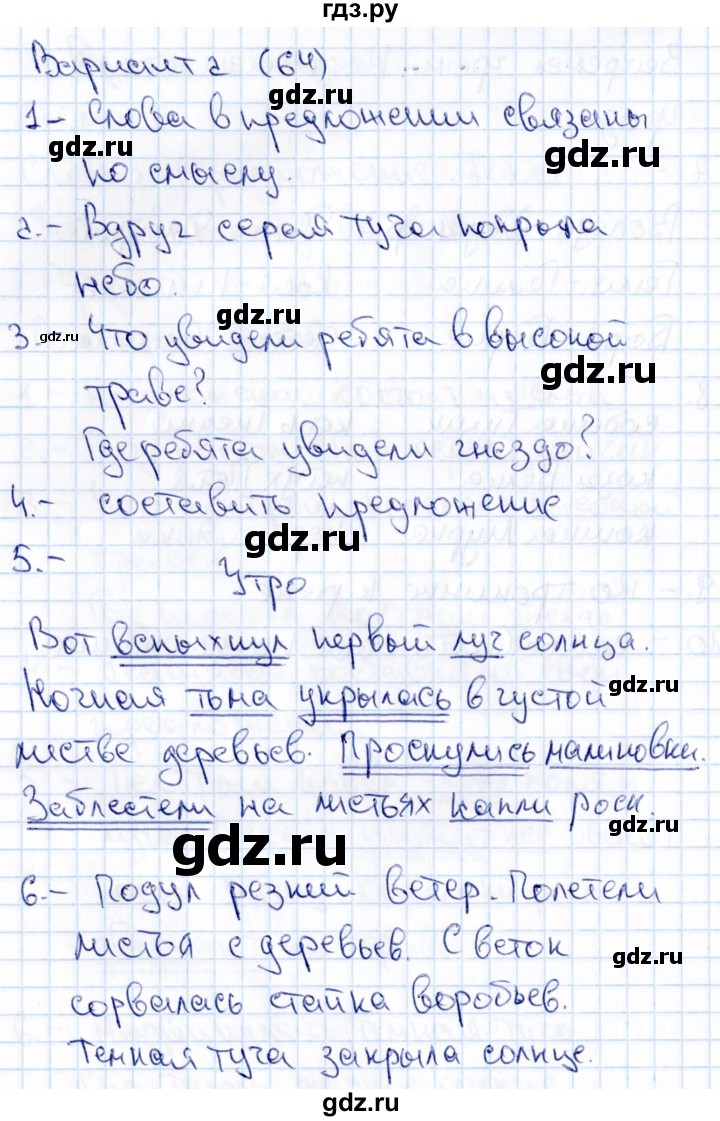 гдз.ру
Вариант 2 (64)
gdz.ru
1- Слова в предложении связаны
gdz.ru
gdz.ru
по смыслу.
2.- Вдруг серая туча покрыла
небо.
gdz.ru
3 gdz.ru Что увидели ребята в высокой
gdz.ru
траве?
Где ребята увидели гнездо?
4.- составить предложение
gdz.ru
5.-
Утро
Вот вспыхнул первый луч солнца.
gdz.ru
Ночная тьма укрылась в густой
листве деревьев. Проснулись малиновки.
Заблестели на листьях капли росы.
gdz.ru
gdz.ru
6.- Подул резкий ветер. Полетели
листья с деревьев. С веток
gdz.ru
сорвалась стайка воробьев.
Темная туча закрыла солнце.
gdz.ru